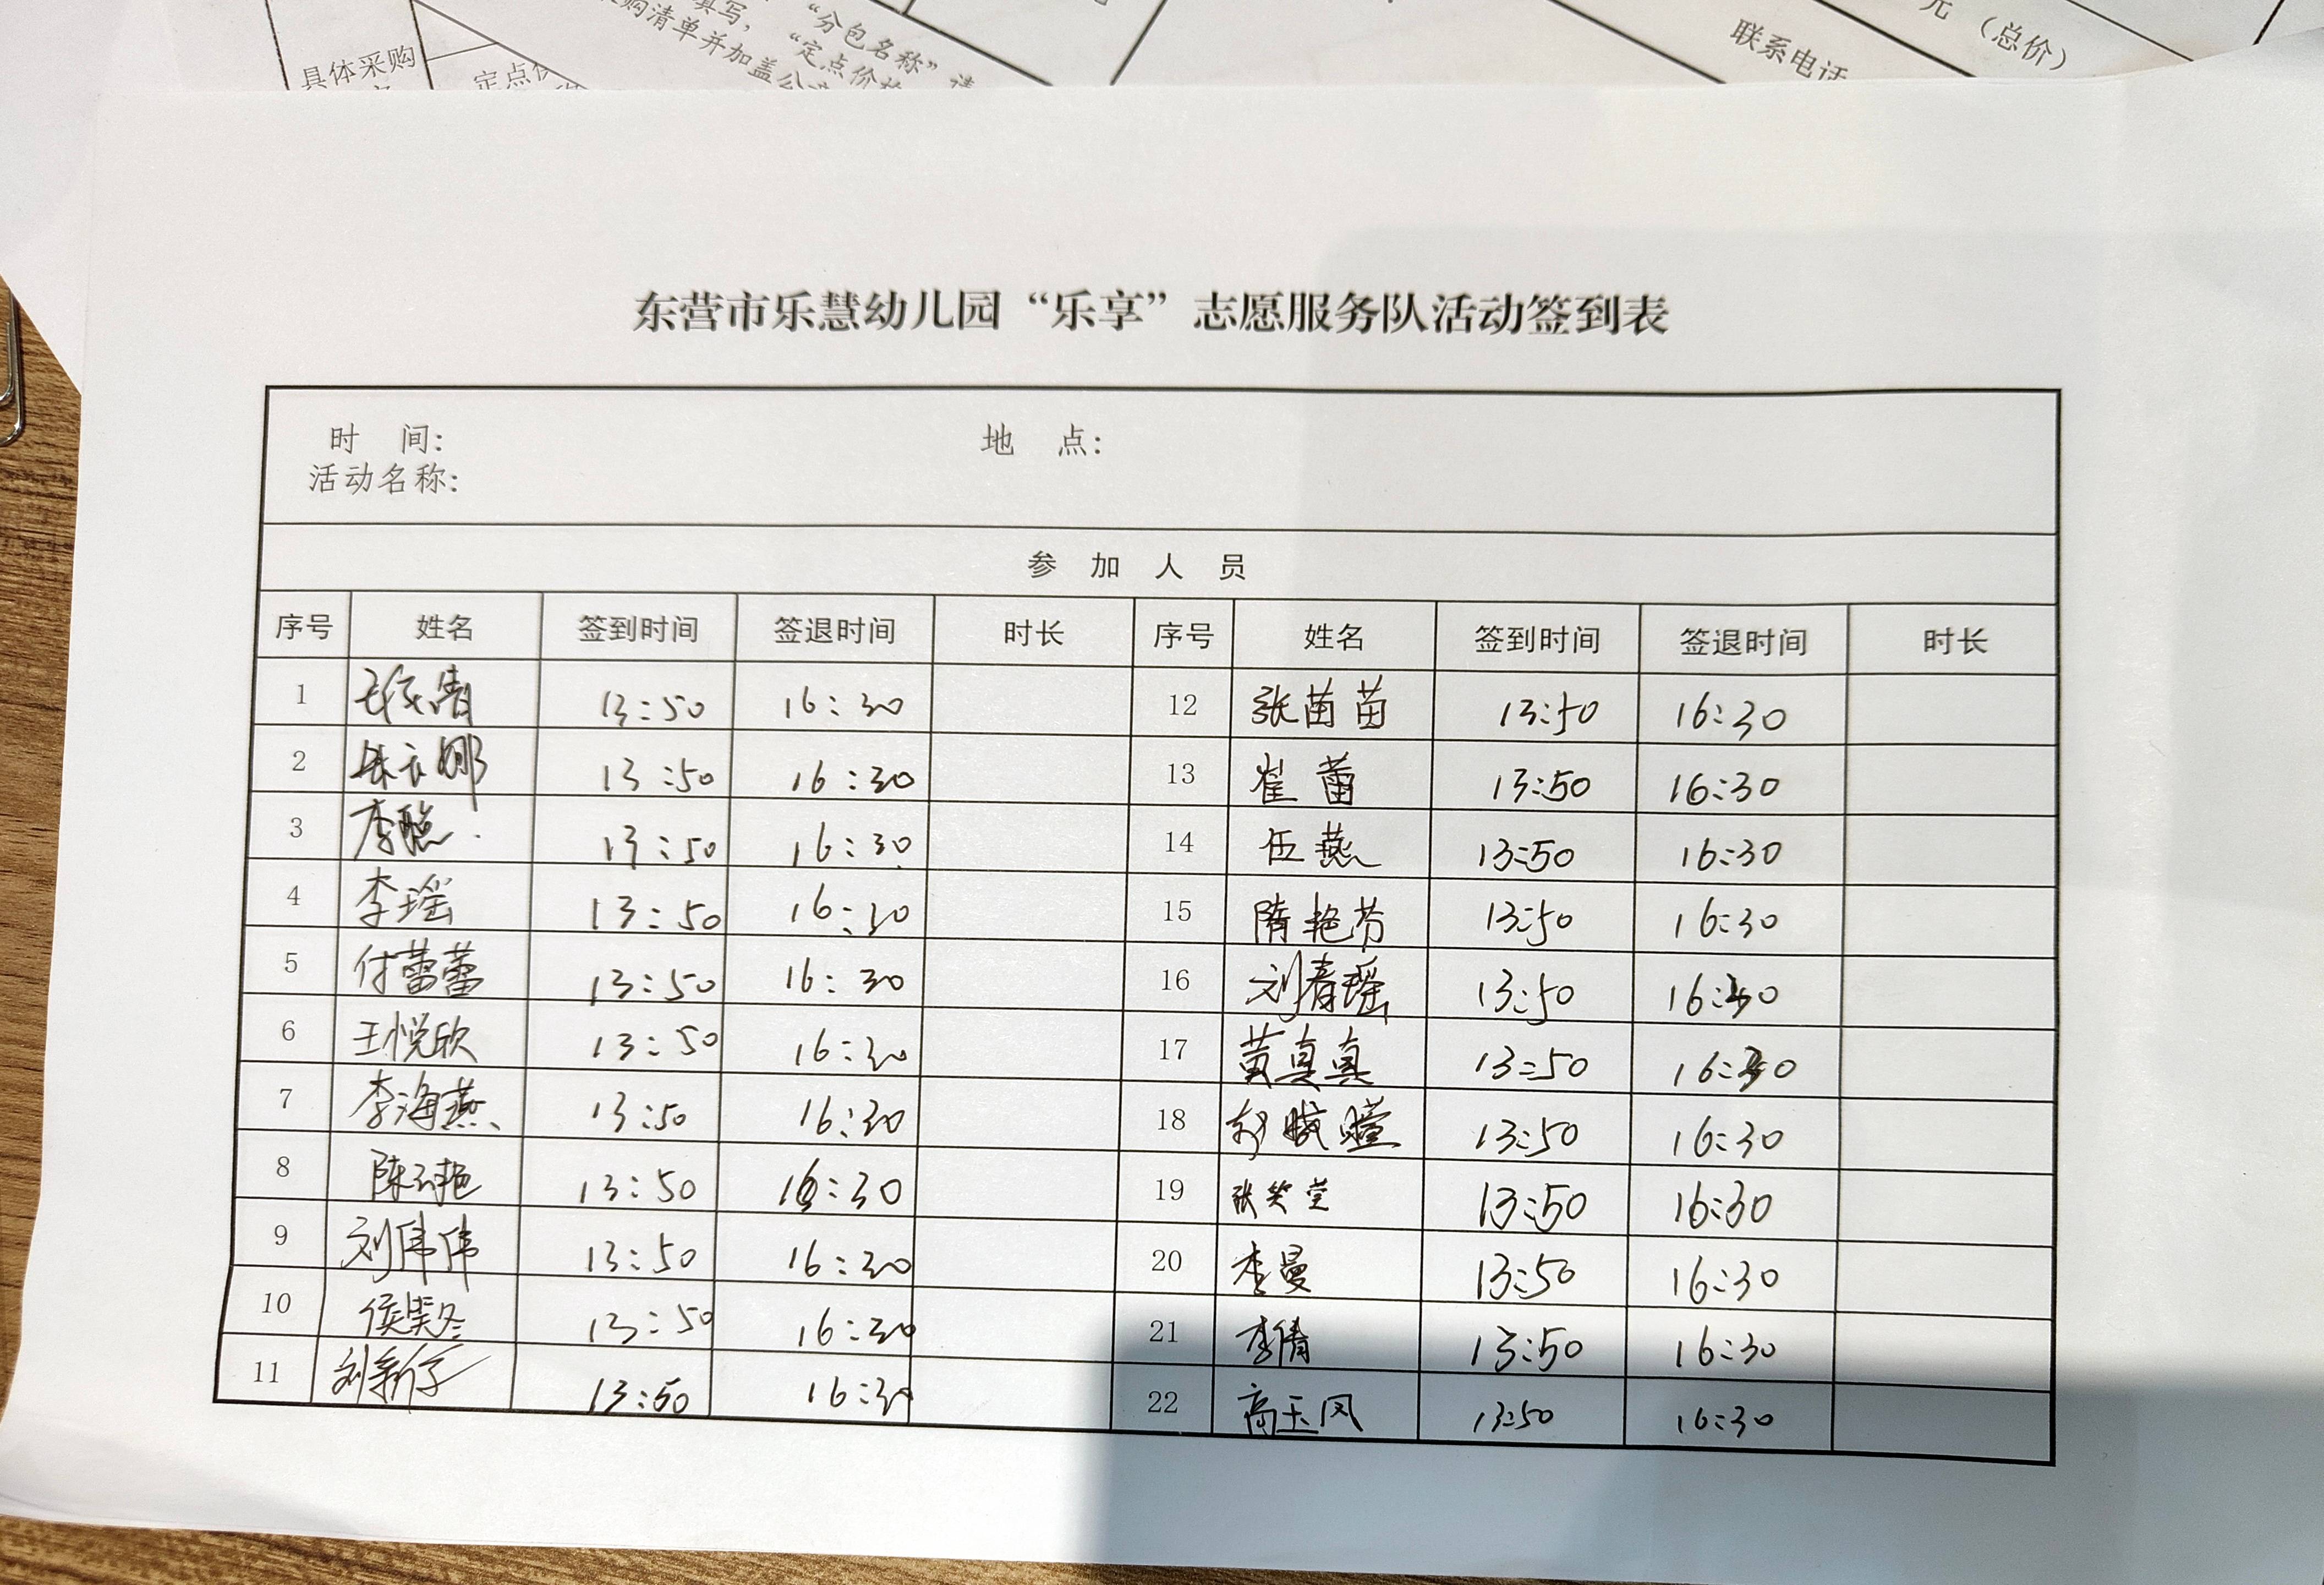 “分包名称”请
填写，“定点价格
购清单并加盖公
具体采购
定点价
联系电话
元（总价）
东营市乐慧幼儿园“乐享”志愿服务队活动签到表
时 间： 地 点：
活动名称：
参 加 人 员
序号 姓名 签到时间 签退时间 时长 序号 姓名 签到时间 签退时间 时长
1 13:50 16:30 12 张苗苗 13:50 16:30
2 13:50 16:30 13 崔蕾 13:50 16:30
3 李聪 13:50 16:30 14 伍燕 13:50 16:30
4 李瑶 13:50 16:30 15 隋艳芳 13:50 16:30
5 付蕾蕾 13:50 16:30 16 刘春瑶 13:50 16:30
6 王悦欣 13:50 16:30 17 黄真真 13:50 16:30
7 李海燕 13:50 16:30 18 13:50 16:30
8 13:50 16:30 19 张笑莹 13:50 16:30
9 刘伟伟 13:50 16:30 20 李曼 13:50 16:30
10 13:50 16:30 21 李倩 13:50 16:30
11 刘新宇 13:50 16:30 22 高玉凤 13:50 16:30